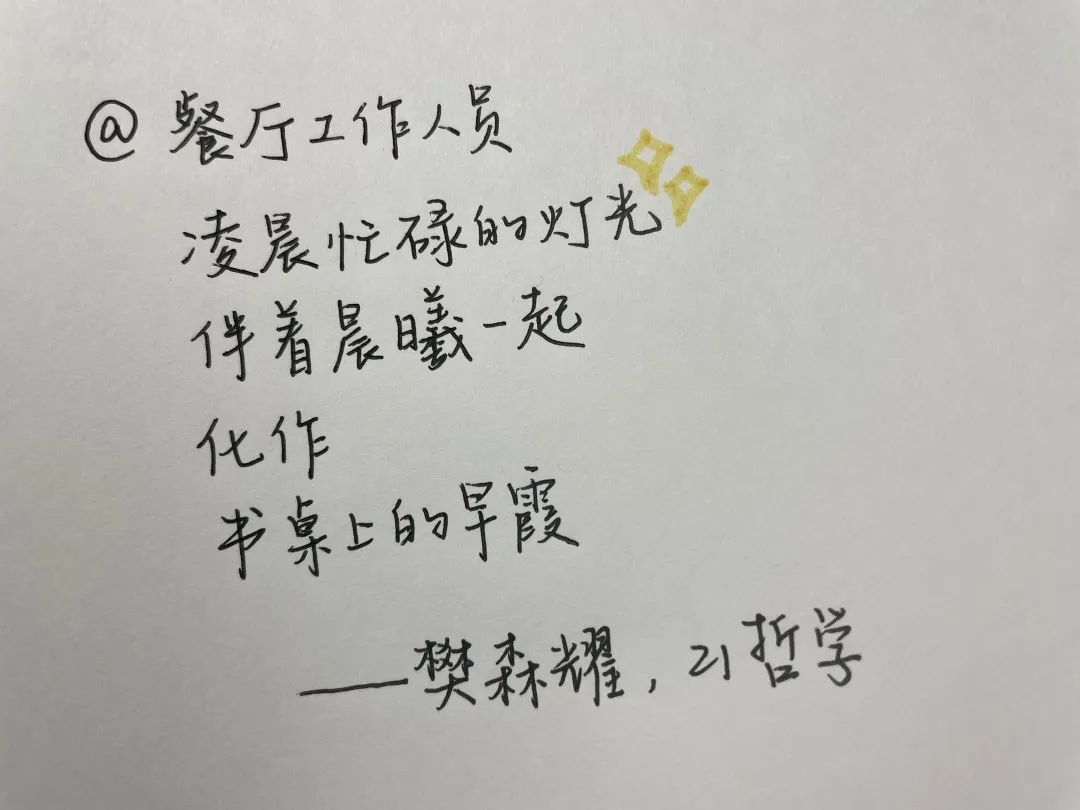 @餐厅工作人员
凌晨忙碌的灯光
伴着晨曦一起
化作
书桌上的早霞
——樊森耀，21哲学